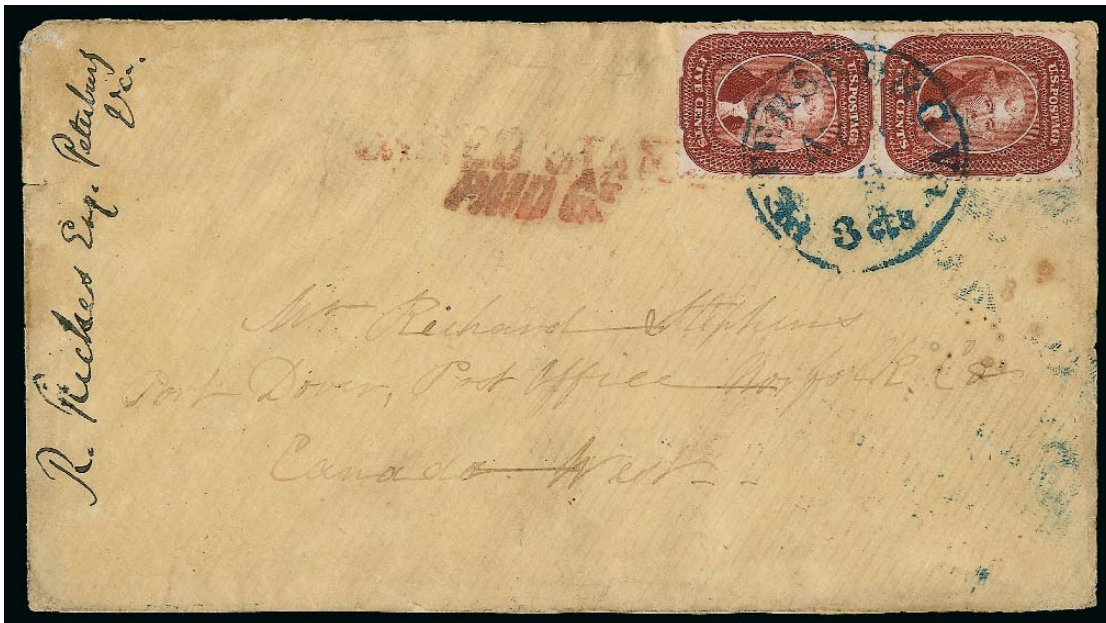 R. Riches Esq. Petersburg
Va.
U.S. POSTAGE
FIVE CENTS
U.S. POSTAGE
FIVE CENTS
PETERSBURG VA.
3 cts
PAID
Mr Richard Stephens
Port Dover, Post Office Norfolk Co
Canada West